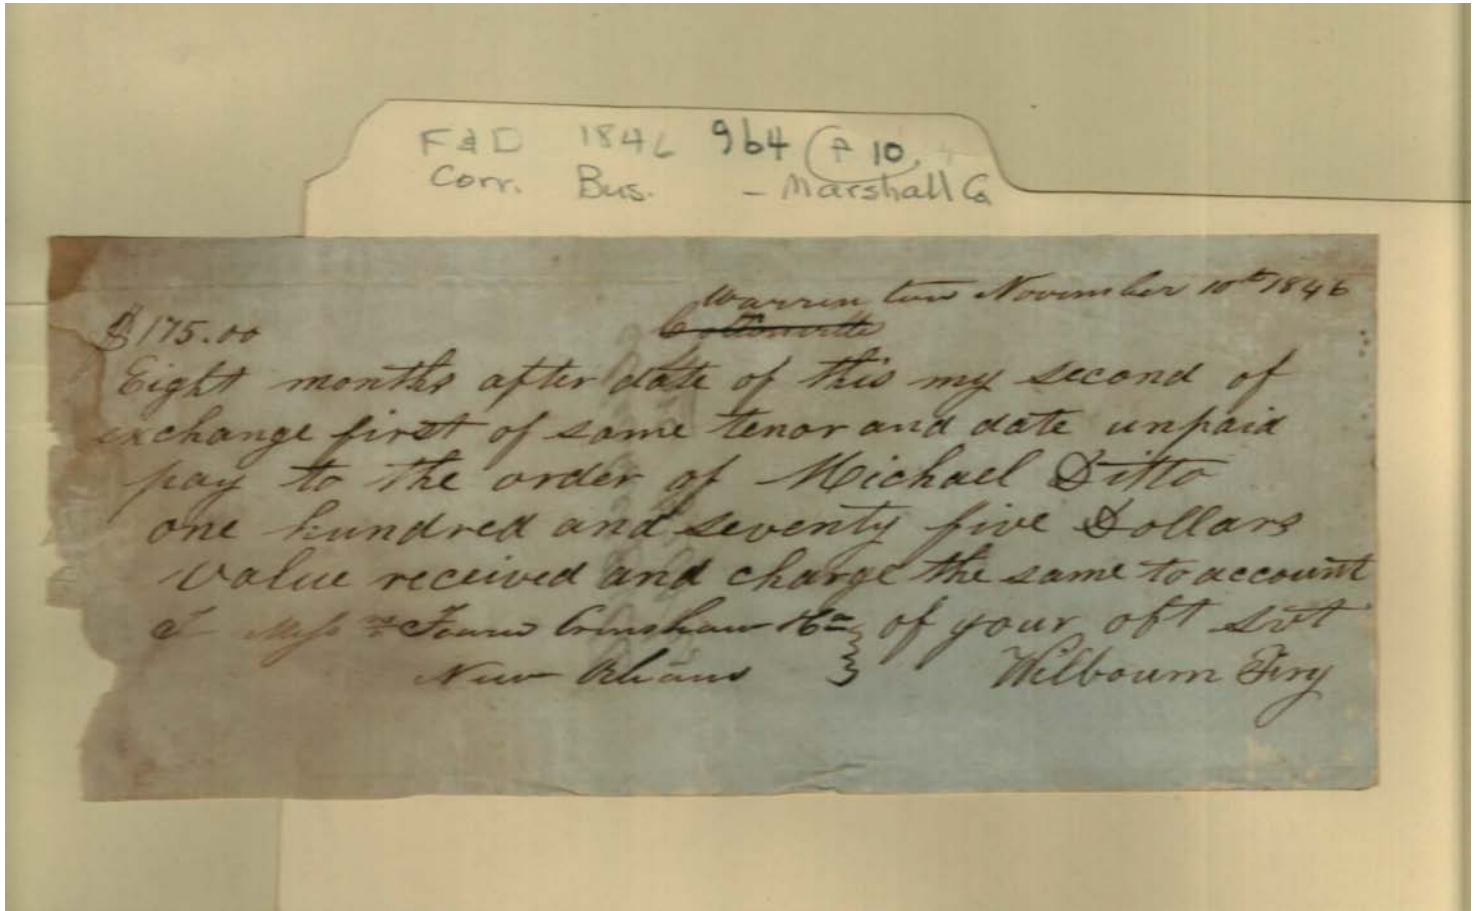 F & D 1846 964 P 10
Corr. Bus. - Marshall Co
Warrenton November 10th 1846
$175.00 Cottonville
Eight months after date of this my second of
exchange first of same tenor and date unpaid
pay to the order of Michael Ditto
one hundred and seventy five Dollars
Value received and charge the same to account
Messrs Crenshaw & Co of your obt svt
New Orleans Wilbourn